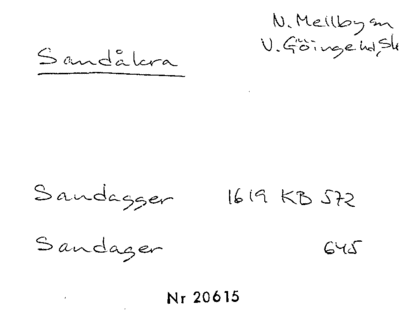 N. Mellby sn
V. Göinge hd, Sk
Sandåkra
Sandagger 1619 KB 572
Sandager 645
Nr 20615